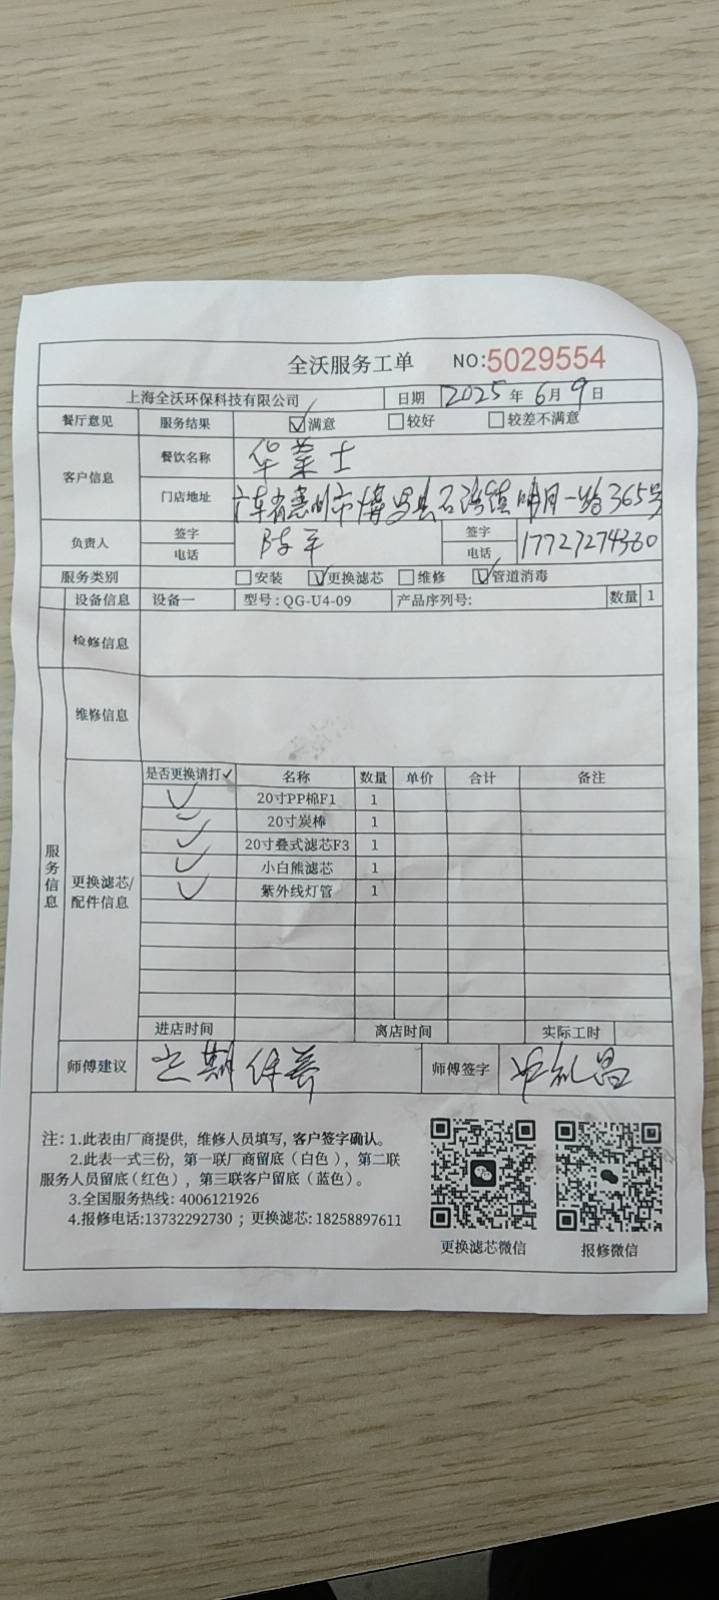 全沃服务工单 NO:5029554
上海全沃环保科技有限公司 日期 2025年6月9日
餐厅意见 服务结果 ☑满意 □较好 □较差不满意
客户信息 餐饮名称 华莱士
门店地址 广东省惠州市博罗县石湾镇明月一路365号
负责人 签字 陈平 签字
电话 电话 17727274360
服务类别 □安装 ☑更换滤芯 □维修 ☑管道消毒
设备信息 设备一 型号:QG-U4-09 产品序列号: 数量 1
检修信息
维修信息
服务信息
更换滤芯/配件信息
是否更换请打✓ 名称 数量 单价 合计 备注
✓ 20寸PP棉F1 1
✓ 20寸炭棒 1
✓ 20寸叠式滤芯F3 1
✓ 小白熊滤芯 1
✓ 紫外线灯管 1
进店时间 离店时间 实际工时
师傅建议 定期保养 师傅签字
注: 1.此表由厂商提供, 维修人员填写, 客户签字确认。
2.此表一式三份, 第一联厂商留底（白色）, 第二联
服务人员留底（红色）, 第三联客户留底（蓝色）。
3.全国服务热线: 4006121926
4.报修电话:13732292730 ; 更换滤芯: 18258897611
更换滤芯微信 报修微信